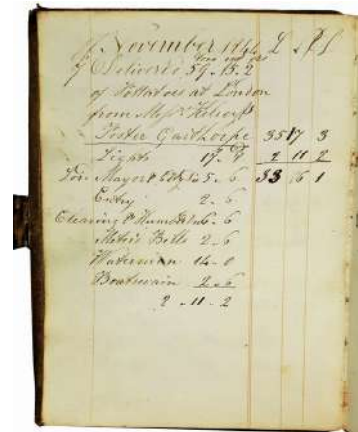 November 1844 £ s d
Delivered 59.15.2
of Pottatoes at London
from Messrs
Foster Gaithorpe 35 17 3
Lights 17.8 2 11 2
For Mayor & City 5.6 33 6 1
Entry 2.6
Clearing & 6.6
Meter's Bills 2.6
Waterman 14.0
Boatswain 2.6
2-11-2